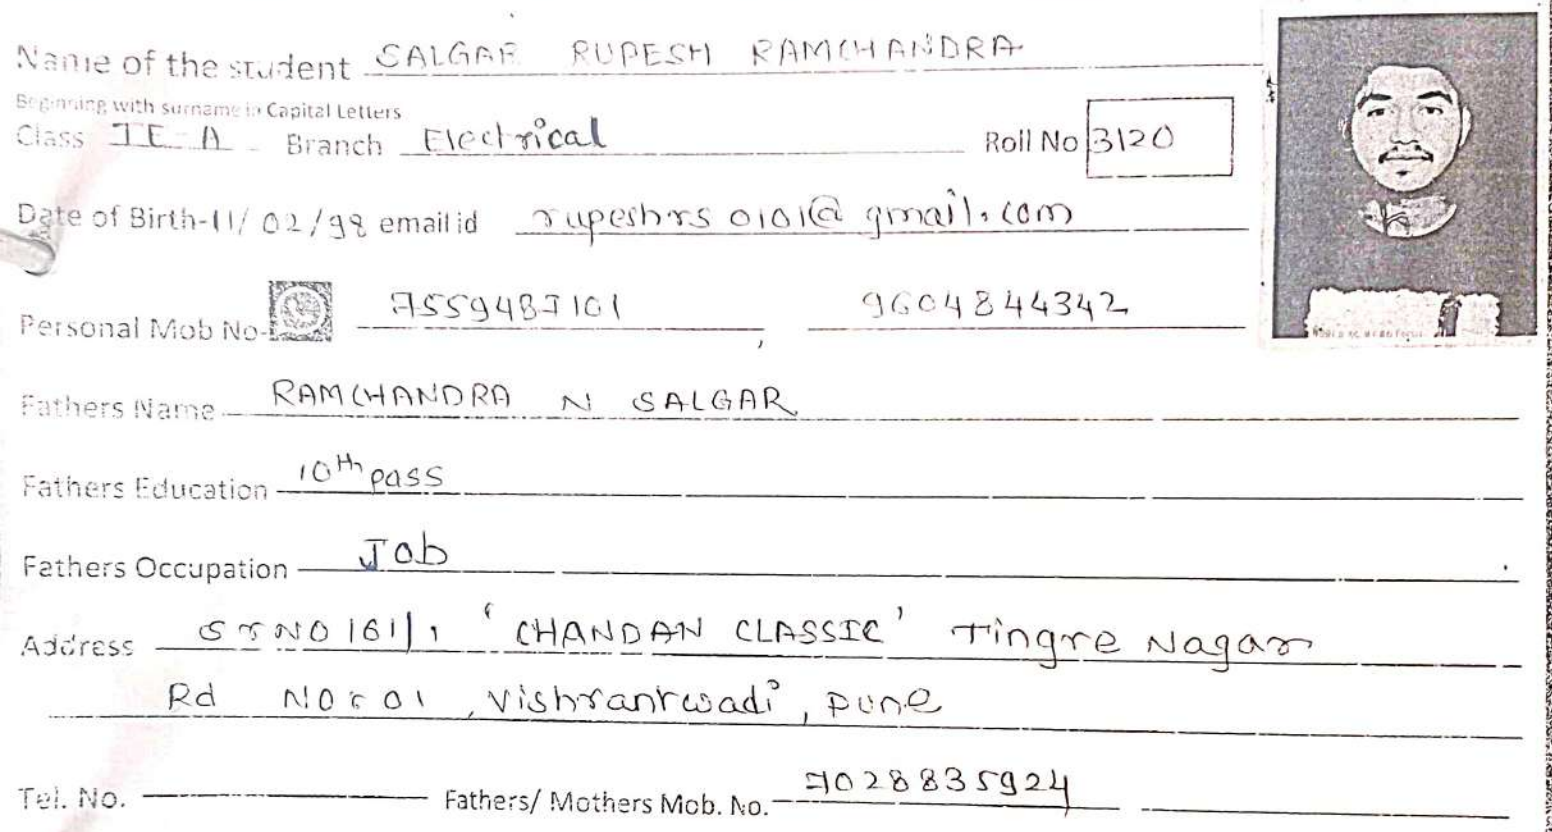 Name of the student SALGAR RUPESH RAMCHANDRA
Beginning with surname in Capital Letters
Class TE A Branch Electrical Roll No 3120
Date of Birth-11/02/98 email id rupeshrs0101@gmail.com
Personal Mob No- 7559487101, 9604844342
Fathers Name RAMCHANDRA N SALGAR
Fathers Education 10th pass
Fathers Occupation Job
Address Sr NO 161/1 'CHANDAN CLASSIC' Tingre Nagar
Rd No 01, Vishrantwadi, Pune
Tel. No. Fathers/ Mothers Mob. No. 7028835924